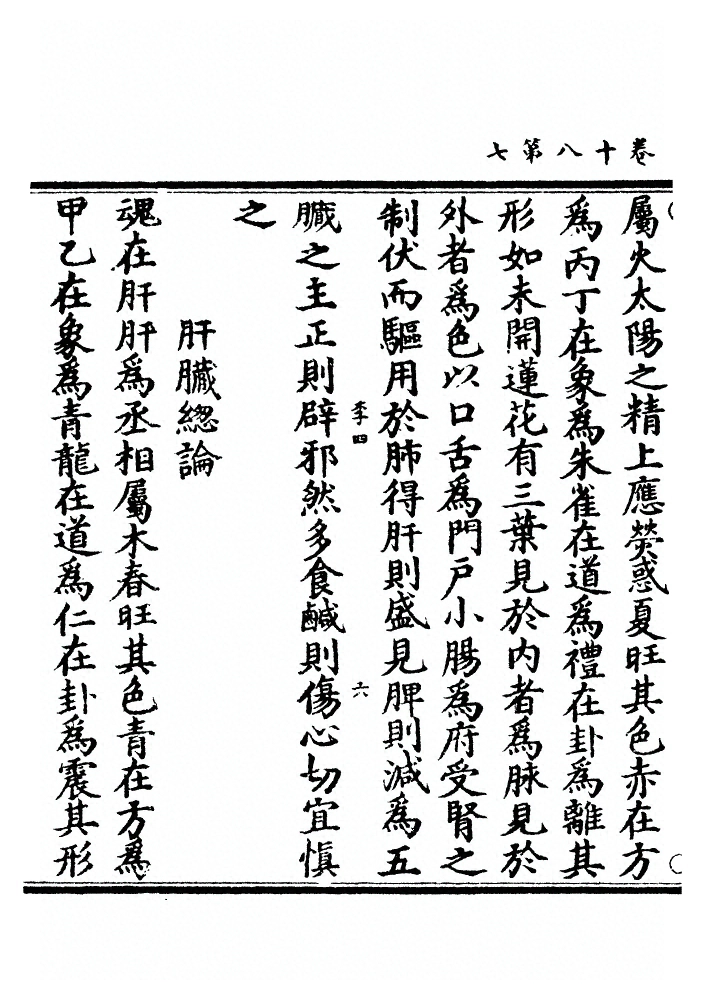 卷十八第七
屬火太陽之精上應熒惑夏旺其色赤在方
爲丙丁在象爲朱雀在道爲禮在卦爲離其
形如未開蓮花有三葉見於内者爲脉見於
外者爲色以口舌爲門戸小腸爲府受腎之
制伏而驅用於肺得肝則盛見脾則減爲五
季四 六
臓之主正則辟邪然多食鹹則傷心切宜慎
之
肝臓緫論
魂在肝肝爲丞相屬木春旺其色青在方爲
甲乙在象爲青龍在道爲仁在卦爲震其形